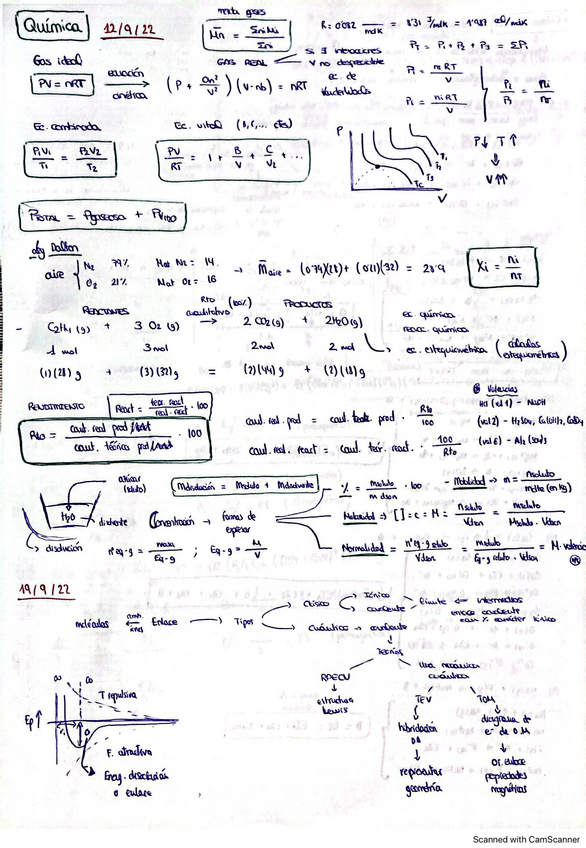 Química 12/9/22
mezcla gases
M̄n = Σni Mi / Σni
R = 0'082 /molK = 8'31 J/molK = 1'987 cal/molK
PT = P1 + P2 + P3 = ΣPi
Gas ideal
PV = nRT
ecuación cinética
(P + an²/V²)(V - nb) = nRT
GAS REAL
Si ∃ interacciones
V no despreciable
ec. de
Vanderwaals
Pi = ni RT / V
Ec. combinada
P1V1/T1 = P2V2/T2
Ec. virial
PV/RT = 1 + B/V + C/V2 + ...
P
T1
T2
T3
TC
V
P↓ T↑
⇓
V↑↑
PTOTAL = Pgaseosa + PVH2O
Ley Dalton
aire { N2 79% Mat N2 = 14
O2 21% Mat O2 = 16
→ M̄aire = (0'79)(28) + (0'21)(32) = 28'9
Xi = ni / nT
REACTIVOS
Rto (100%)
cuantitativo
PRODUCTOS
- C2H4 (g) + 3 O2 (g) → 2 CO2 (g) + 2 H2O (g)
1 mol 3 mol 2 mol 2 mol
(1)(28) g + (3)(32) g = (2)(44) g + (2)(18) g
ec. química
reacc. química
ec. estequiométrica (cálculos estequiométricos)
RENDIMIENTO
React = teor. react / real. react · 100
Rto = cant. real prod/react / cant. teórica prod/react · 100
cant. real prod = cant. teór. prod · Rto/100
cant. real. react = cant. teór. react. · 100/Rto
Valencias
(val 1) = NaOH
(val 2) - H2SO4, Ca(OH)2,
(val 6) - Al2(SO4)3
azúcar
(soluto)
H2O
disolvente
disolución
Mdisolución = Msoluto + Mdisolvente
Concentración → formas de
expresar
% = msoluto / m dson · 100
- Molalidad → m = nsoluto / mdte (en kg)
Molaridad → [ ] = c = M = nsoluto / Vdson = msoluto / Msoluto · Vdson
Normalidad = nº eq-g soluto / Vdson = msoluto / Eq-g soluto · Vdson = M · valencia
nº eq-g = masa / Eq-g ; Eq-g = M / V
19/9/22
moléculas Enlace → Tipos
Clásico
Iónico
covalente
Límite ← intermedios
enlace covalente
con % carácter iónico
Cuántico → covalente
↓
Teorías
RPECV
↓
estructura
Lewis
Una mecánica
cuántica
TEV
↓
hibridación
OA
↓
representar
geometría
TOM
↓
diagrama de
e⁻ de OM
↓
Or. enlace
propiedades
magnéticas
Ep ↑
∞
F. repulsiva
F. atractiva
Energ. disociación
o enlace
Scanned with CamScanner